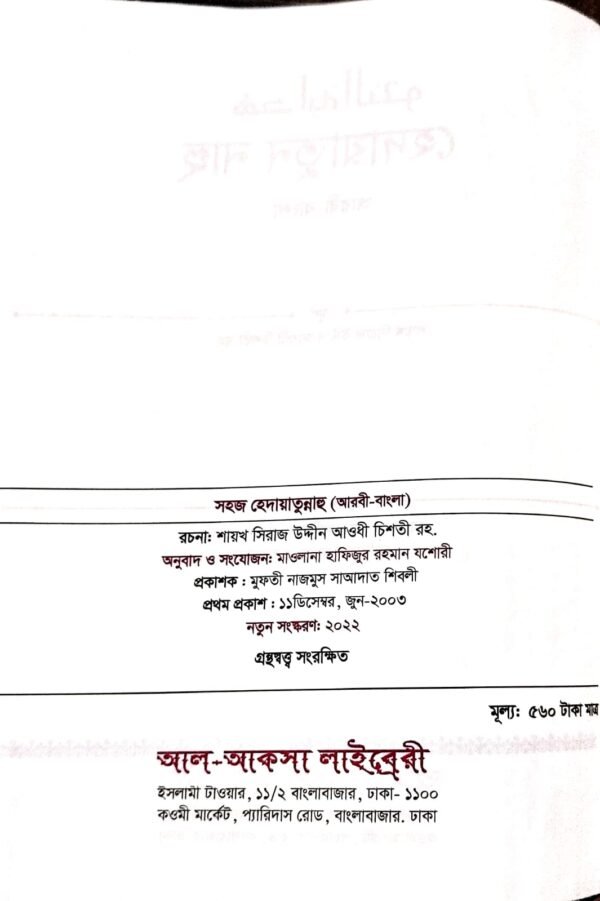 সহজ হেদায়াতুন্নাহু (আরবী-বাংলা)
রচনা: শায়খ সিরাজ উদ্দীন আওধী চিশতী রহ.
অনুবাদ ও সংযোজন: মাওলানা হাফিজুর রহমান যশোরী
প্রকাশক : মুফতী নাজমুস সাআদাত শিবলী
প্রথম প্রকাশ : ১১ডিসেম্বর, জুন-২০০৩
নতুন সংস্করণ: ২০২২
গ্রন্থস্বত্ত্ব সংরক্ষিত
মূল্য: ৫৬০ টাকা মাত্র
আল-আকসা লাইব্রেরী
ইসলামী টাওয়ার, ১১/২ বাংলাবাজার, ঢাকা- ১১০০
কওমী মার্কেট, প্যারিদাস রোড, বাংলাবাজার. ঢাকা